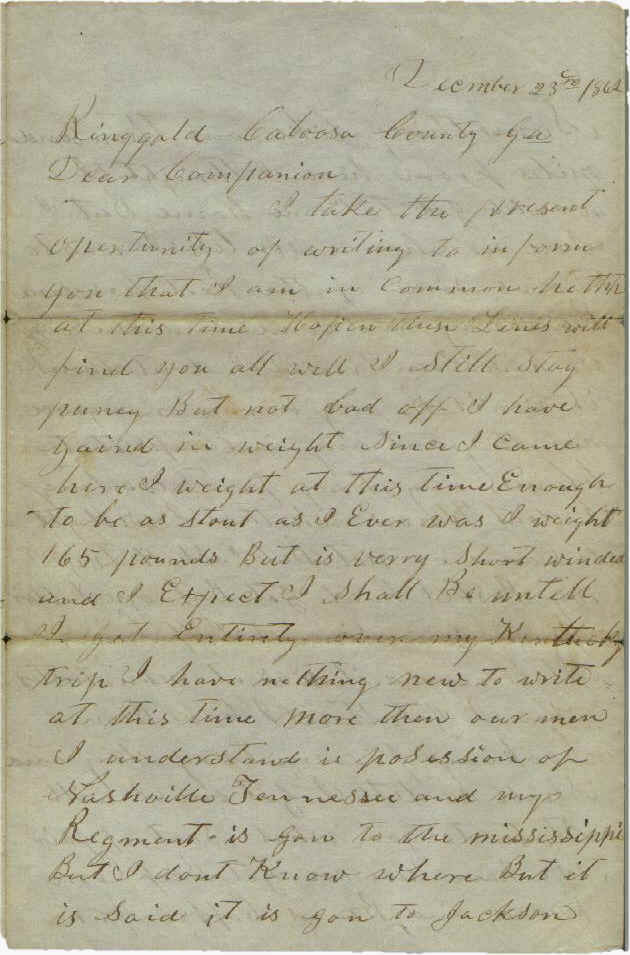 December 23rd 1862
Ringgold Catoosa County Ga
Dear Companion
I take the present
opertunity of writing to inform
you that I am in Common helth
at this time Hopen thes Lines will
find you all well I Still Stay
puney But not bad off I have
gaind in weight Since I came
here I weight at this time Enough
to be as stout as I Ever was I weight
165 pounds But is verry Short winded
and I Expect I Shall Be untell
I get Entirely over my Kentucky
trip I have nothing new to write
at this time more then our men
I understand is posession of
Nashville Tennessee and my
Regment is gon to the mississippi
But I dont Know where But it
is Said it is gon to Jackson